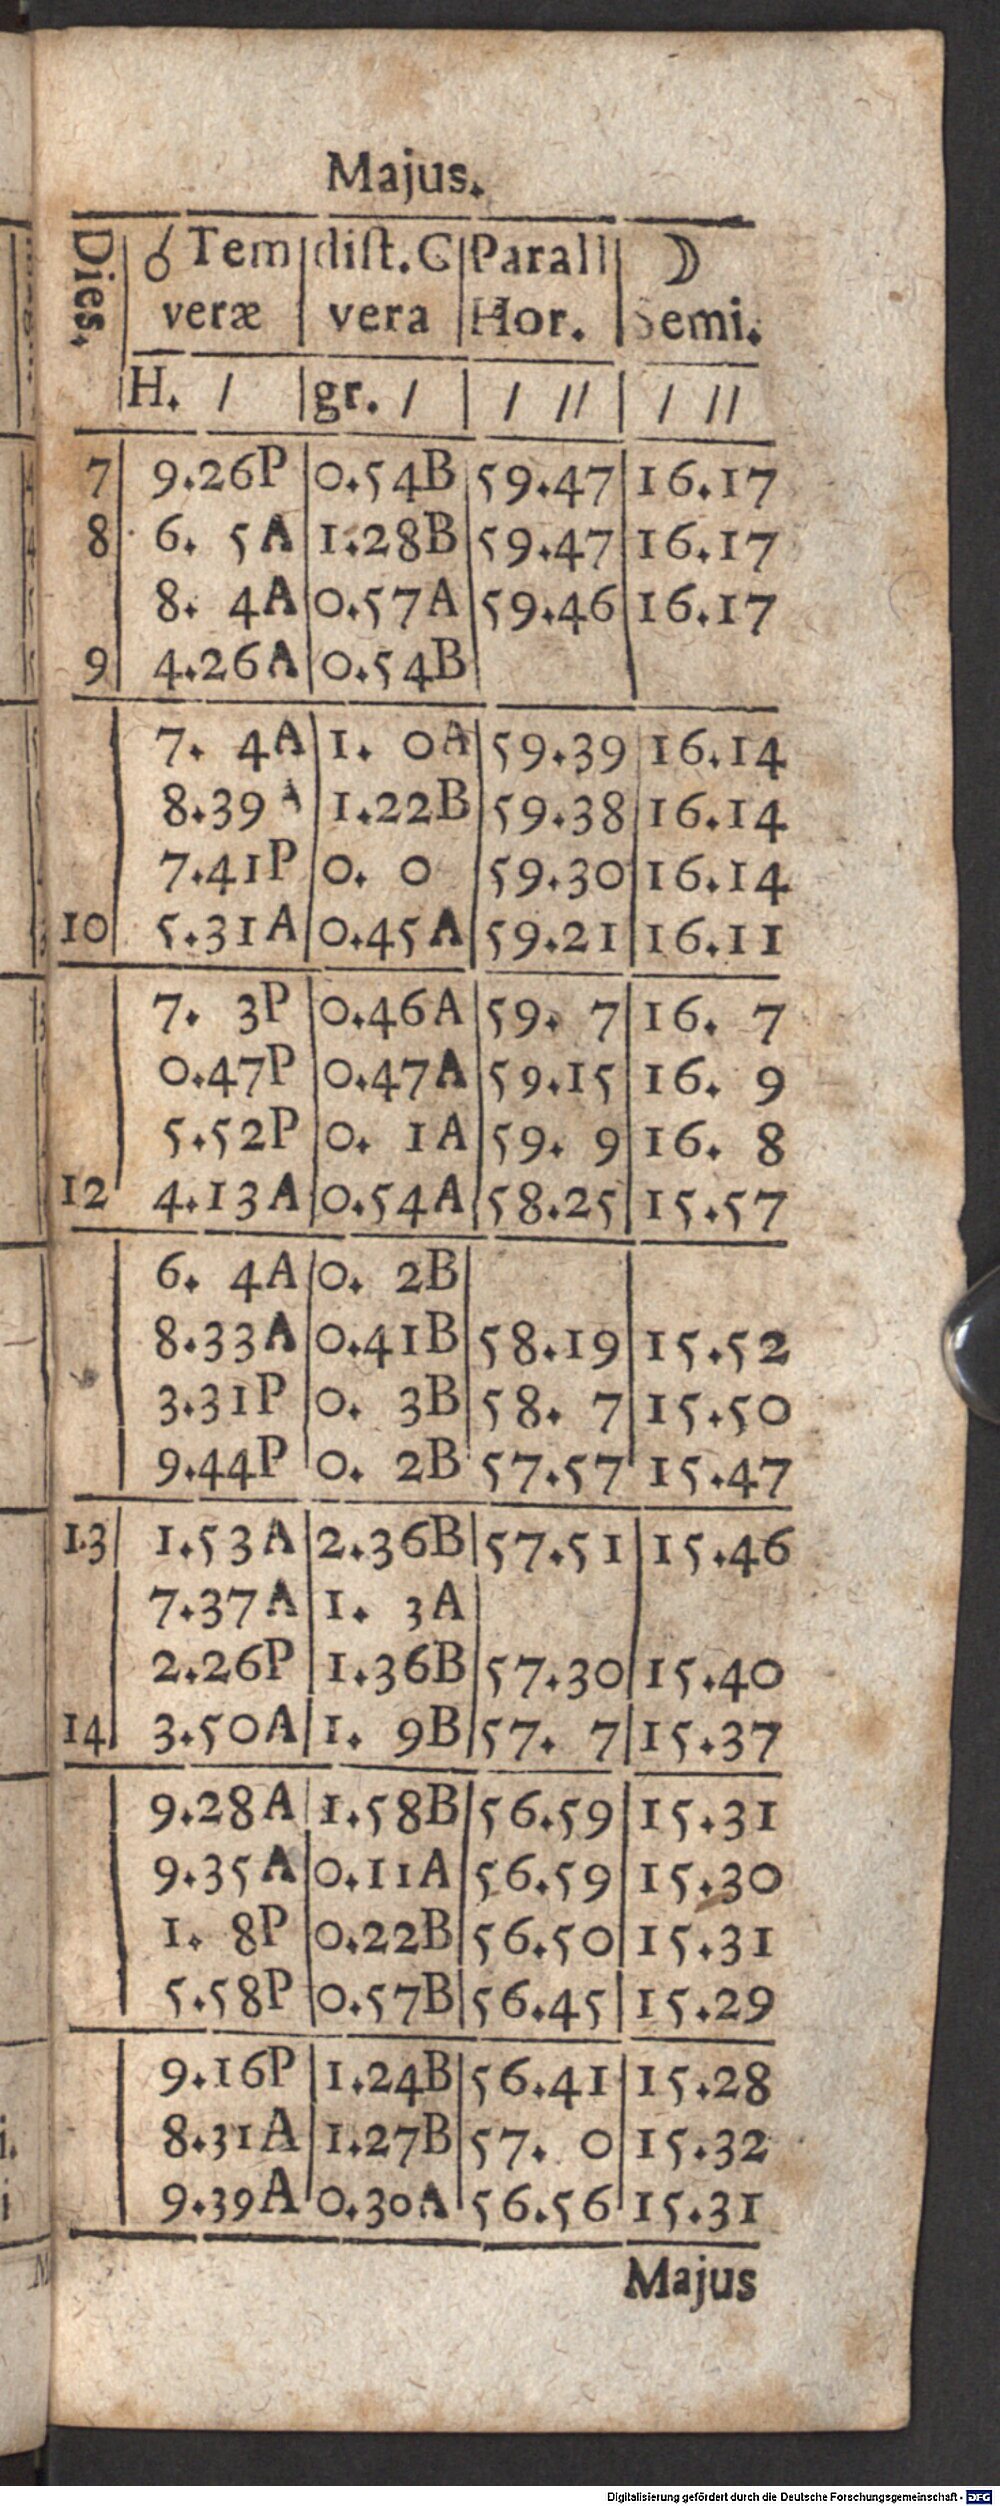 Majus.
Dies. ☌ Tem dist. C Parall ☽
veræ vera Hor. Semi.
H. / gr. / / // / //
7 9.26P 0.54B 59.47 16.17
8 6. 5A 1.28B 59.47 16.17
8. 4A 0.57A 59.46 16.17
9 4.26A 0.54B
7. 4A 1. 0A 59.39 16.14
8.39A 1.22B 59.38 16.14
7.41P 0. 0 59.30 16.14
10 5.31A 0.45A 59.21 16.11
7. 3P 0.46A 59. 7 16. 7
0.47P 0.47A 59.15 16. 9
5.52P 0. 1A 59. 9 16. 8
12 4.13A 0.54A 58.25 15.57
6. 4A 0. 2B
8.33A 0.41B 58.19 15.52
3.31P 0. 3B 58. 7 15.50
9.44P 0. 2B 57.57 15.47
13 1.53A 2.36B 57.51 15.46
7.37A 1. 3A
2.26P 1.36B 57.30 15.40
14 3.50A 1. 9B 57. 7 15.37
9.28A 1.58B 56.59 15.31
9.35A 0.11A 56.59 15.30
1. 8P 0.22B 56.50 15.31
5.58P 0.57B 56.45 15.29
9.16P 1.24B 56.41 15.28
8.31A 1.27B 57. 0 15.32
9.39A 0.30A 56.56 15.31
Majus
Digitalisierung gefördert durch die Deutsche Forschungsgemeinschaft - DFG